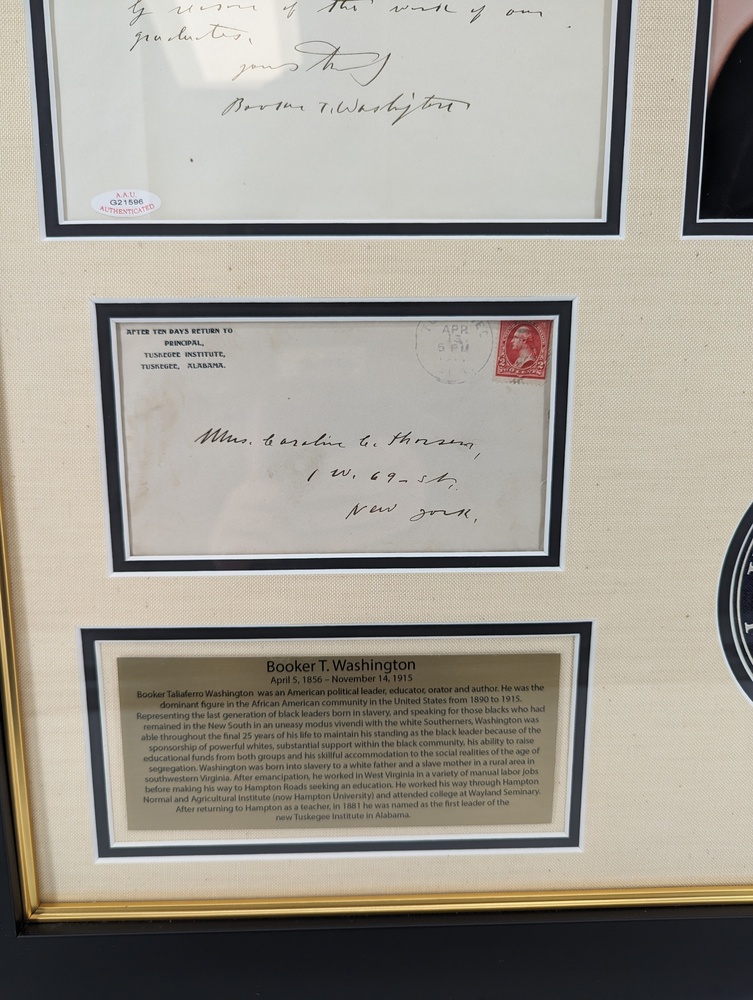 By reason of the work of our
graduates.
yours truly
Booker T. Washington
A.A.U.
G21596
AUTHENTICATED
AFTER TEN DAYS RETURN TO
PRINCIPAL,
TUSKEGEE INSTITUTE,
TUSKEGEE, ALABAMA.
APR
13
5 PM
2 2
Mrs. Caroline C. Thorsen,
1 W. 69- st.
New York.
Booker T. Washington
April 5, 1856 – November 14, 1915
Booker Taliaferro Washington was an American political leader, educator, orator and author. He was the
dominant figure in the African American community in the United States from 1890 to 1915.
Representing the last generation of black leaders born in slavery, and speaking for those blacks who had
remained in the New South in an uneasy modus vivendi with the white Southerners, Washington was
able throughout the final 25 years of his life to maintain his standing as the black leader because of the
sponsorship of powerful whites, substantial support within the black community, his ability to raise
educational funds from both groups and his skillful accommodation to the social realities of the age of
segregation. Washington was born into slavery to a white father and a slave mother in a rural area in
southwestern Virginia. After emancipation, he worked in West Virginia in a variety of manual labor jobs
before making his way to Hampton Roads seeking an education. He worked his way through Hampton
Normal and Agricultural Institute (now Hampton University) and attended college at Wayland Seminary.
After returning to Hampton as a teacher, in 1881 he was named as the first leader of the
new Tuskegee Institute in Alabama.